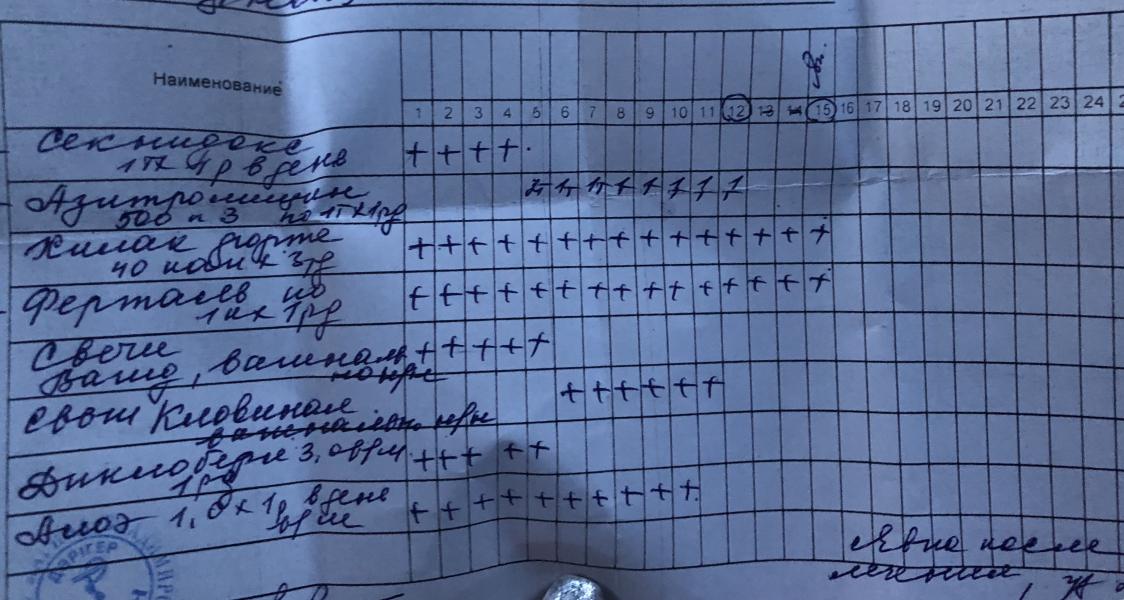 Наименование
1 2 3 4 5 6 7 8 9 10 11 12 13 14 15 16 17 18 19 20 21 22 23 24 2
Секнидокс
1т х 4р в день
+ + + +
Азитромицин
500 n 3 по 1т х 1рд
Хилак форте
40 кап х 3рд
+ + + + + + + + + + + + + + +
Ферталв по
1к х 1рд
+ + + + + + + + + + + + + + +
Свечи
вагинальн
+ + + + +
на ноч
+ + + + + +
свечи Кловинал
Диклоберл 3,0 в/м
1рд
+ + + + +
Алоэ 1,0 х 1р в день
+ + + + + + + + + +
ДӘРІГЕР
Явка после
лечения,